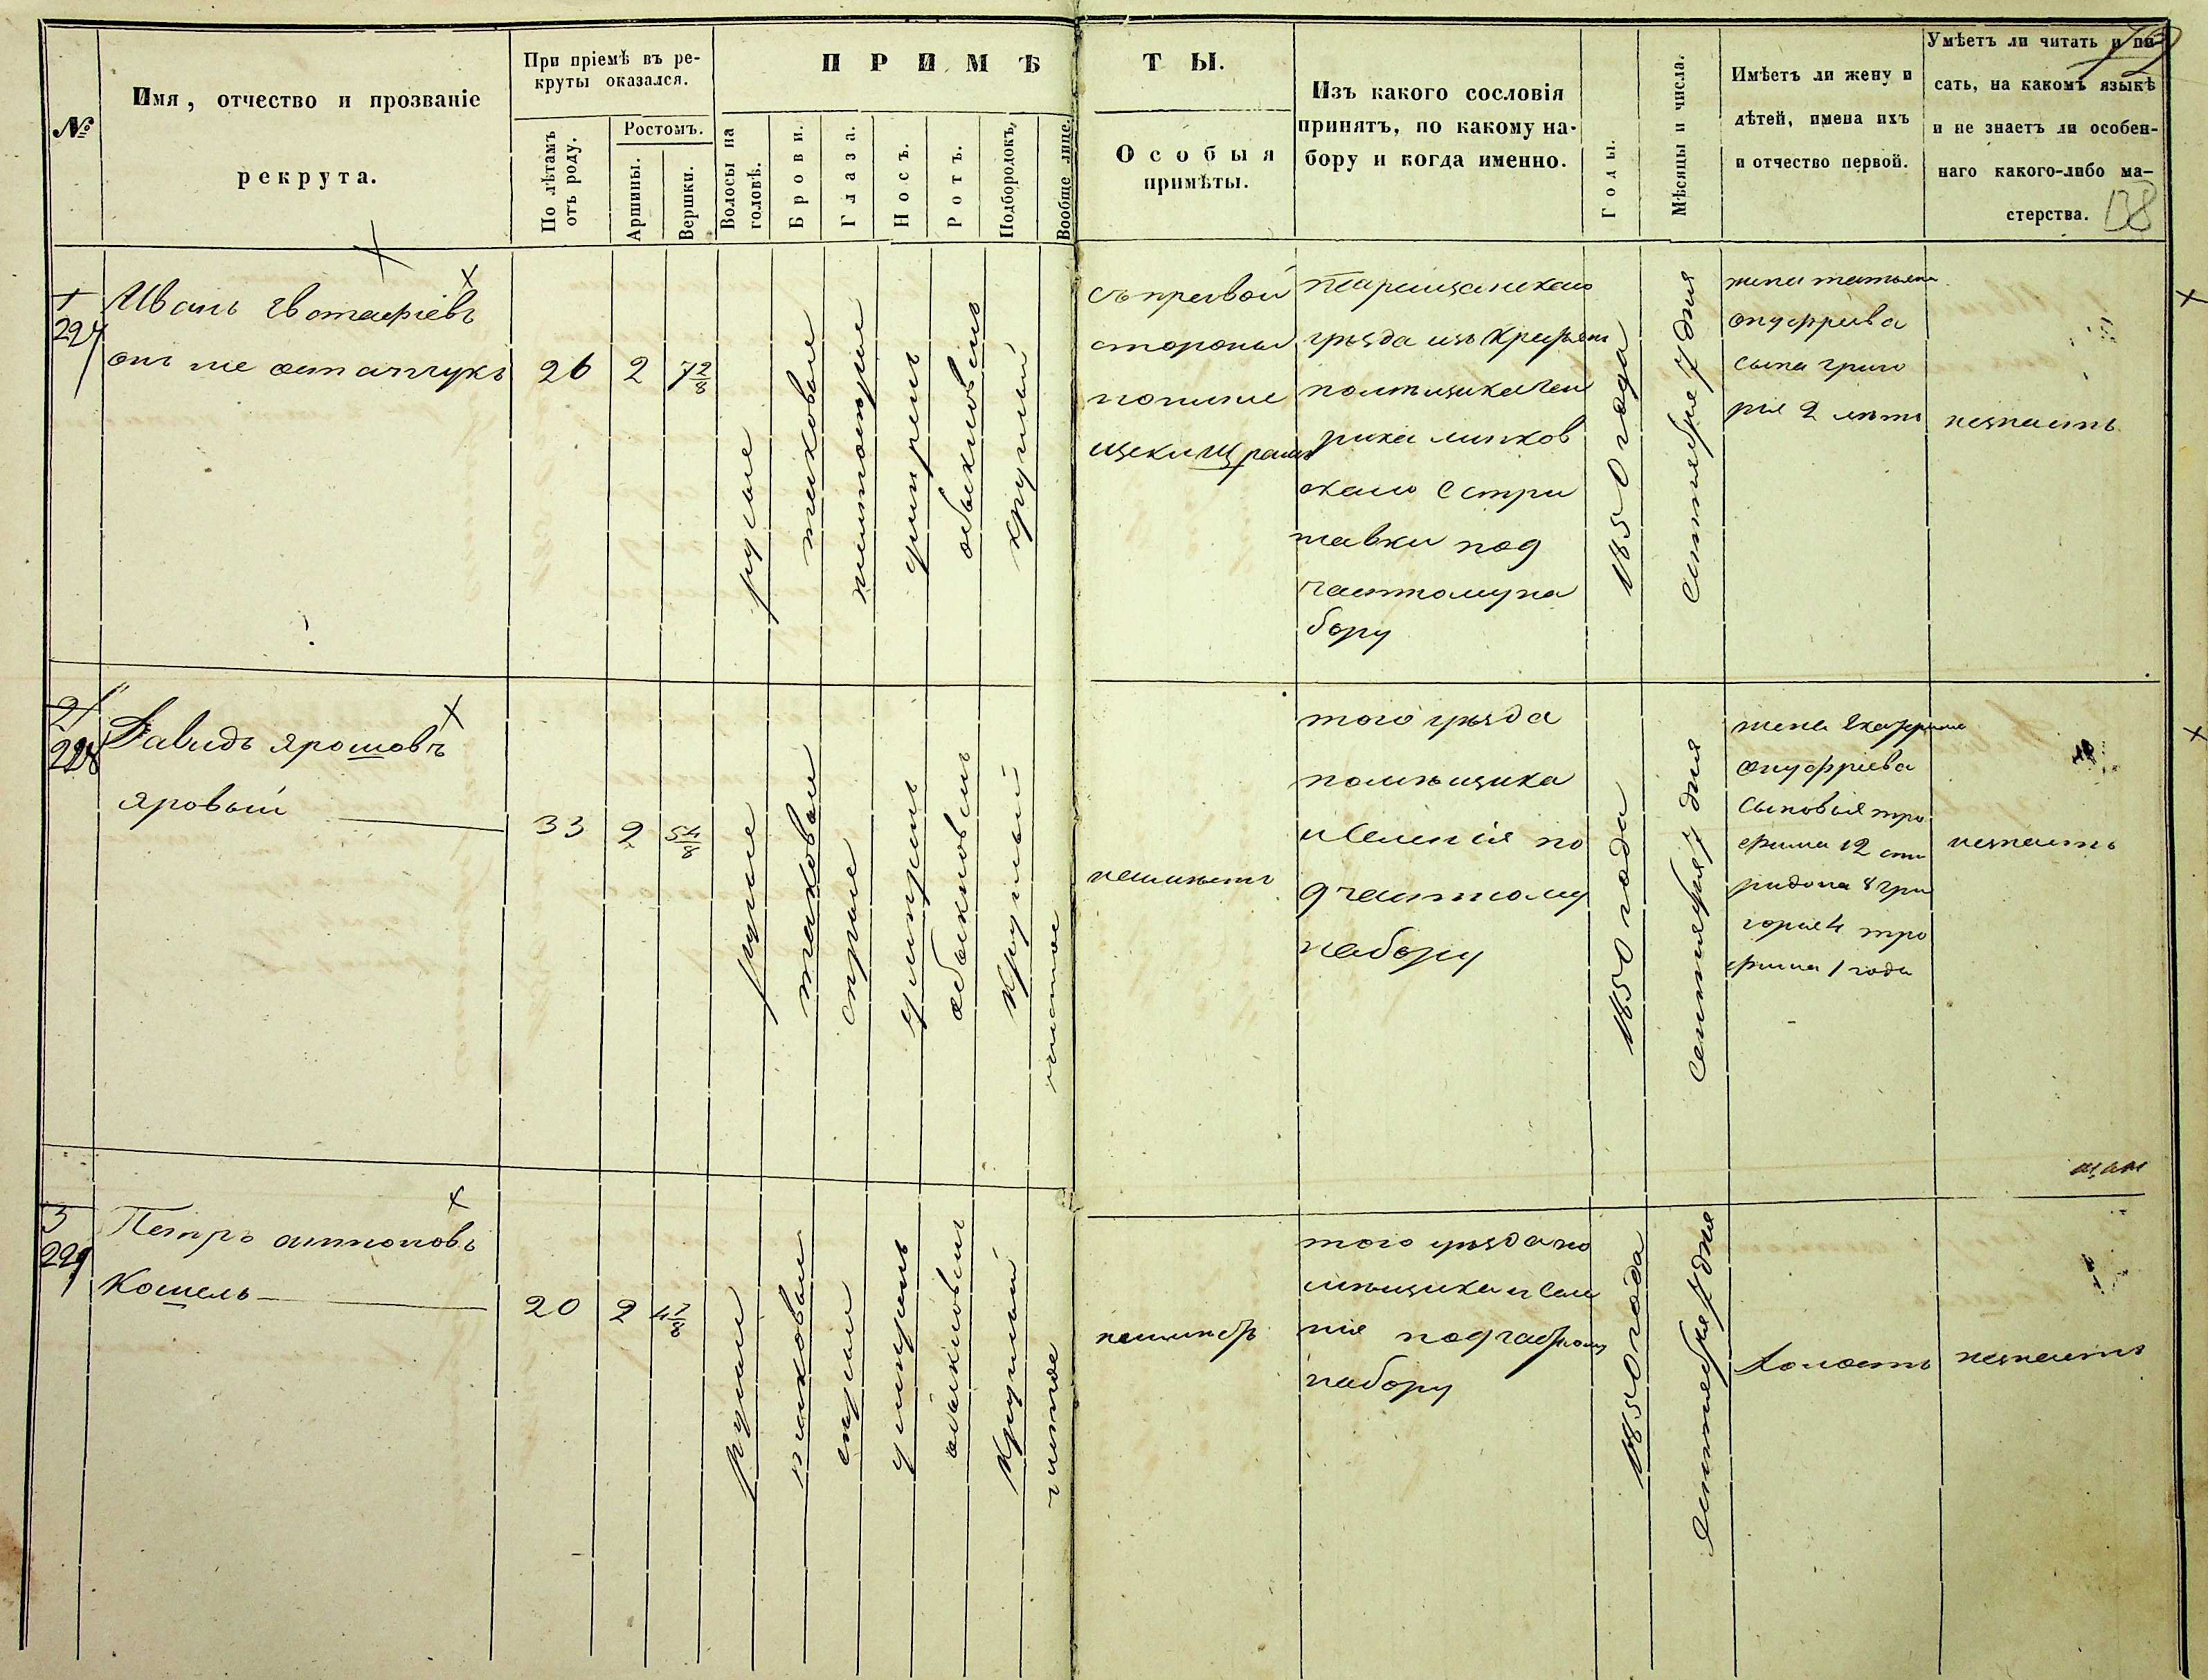 79
138
№
Имя, отчество и прозваніе
рекрута.
При пріемѣ въ ре-
круты оказался.
По лѣтамъ
отъ роду.
Ростомъ.
Аршины.
Вершки.
ПРИМѢ
ТЫ.
Волосы на
головѣ.
Брови.
Глаза.
Носъ.
Ротъ.
Подбородокъ,
Вообще лице.
Особыя
примѣты.
Изъ какого сословія
принятъ, по какому на-
бору и когда именно.
Годы.
Мѣсяцы и числа.
Имѣетъ ли жену и
дѣтей, имена ихъ
и отчество первой.
Умѣетъ ли читать и пи-
сать, на какомъ языкѣ
и не знаетъ ли особен-
наго какого-либо ма-
стерства.
1
227
Иванъ Евстафіевъ
онъ же остапчукъ
26
2
7 2/8
русые
таковые
обыкновенъ
круглый
съ правой
стороны
щеки шрамъ
Таращанскаго
уѣзда изъ крестьян
бору
1850 года
Сентября 7 дня
жена татьяна
онуфріева
сына григо
рія 2 лѣтъ
незнаетъ
2
228
Давидъ Ярошовъ
яровый
33
2
5 4/8
русые
таковые
сѣрые
умѣренъ
обыкновенъ
круглый
чистое
неимѣетъ
того уѣзда
помѣщика
и селенія по
д частному
набору
1850 года
Сентября 7 дня
жена Екатерина
онуфріева
сыновья тро
фима 12 спи
ридона 8 гри
горія 4 тро
фима 1 года
незнаетъ
3
229
Петръ антоновъ
Кошель
20
2
4 7/8
русые
таковые
сѣрые
умѣренъ
обыкновенъ
круглый
чистое
неимѣетъ
того уѣзда по
мѣщика и селе
нія под частному
набору
1850 года
Сентября 7 дня
холостъ
незнаетъ